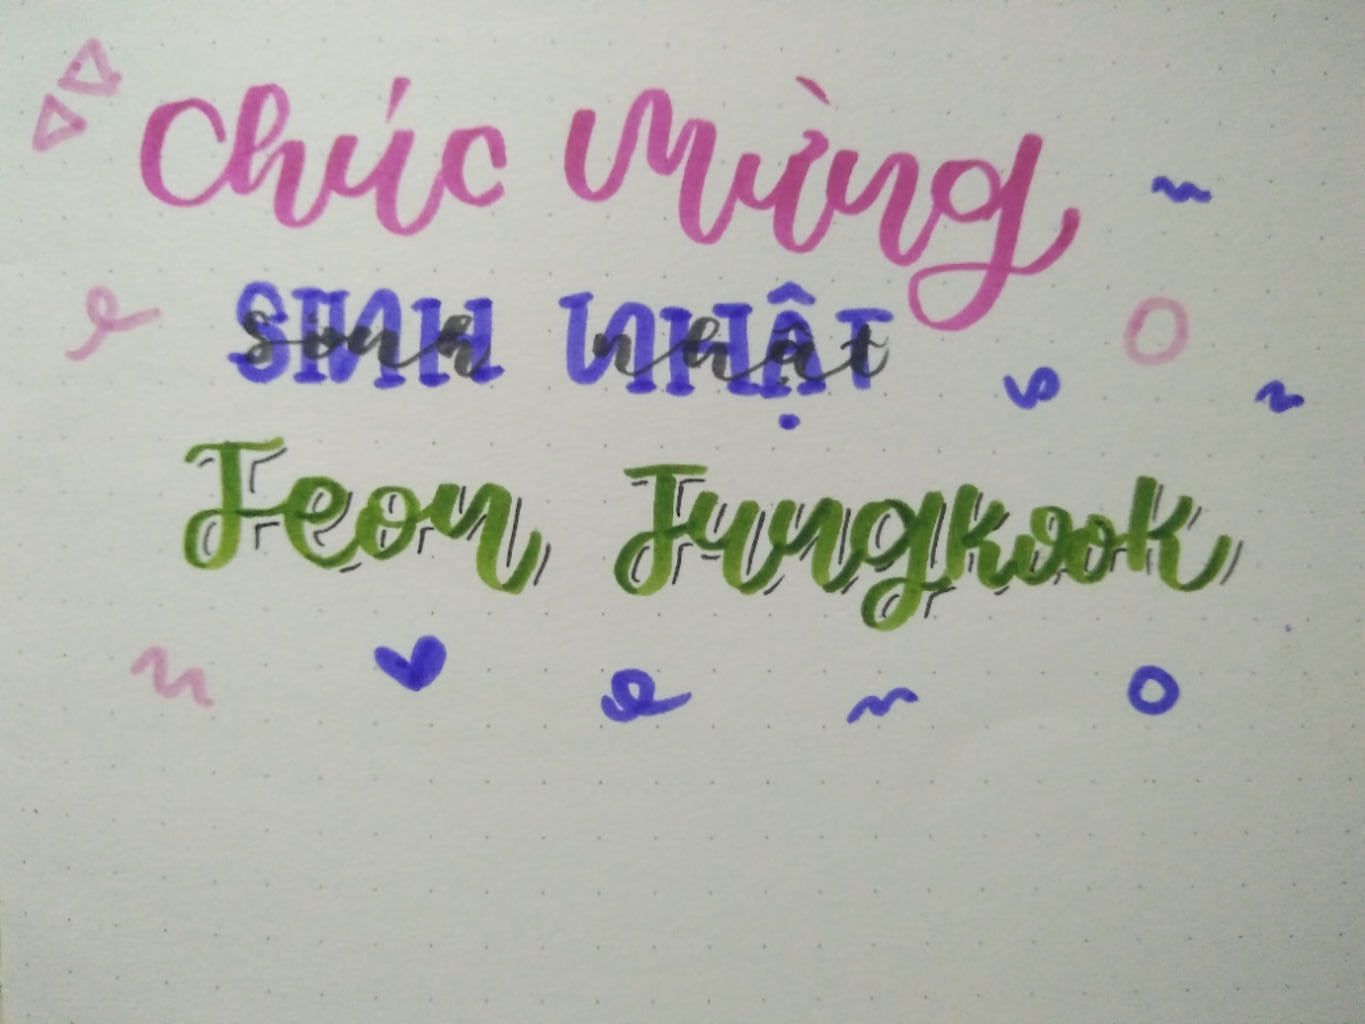 Chúc Mừng
SINH NHẬT
sinh nhật
Jeon Jungkook